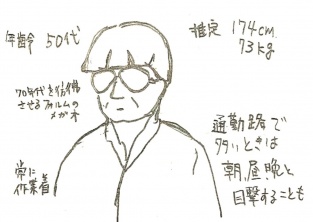 年齢 50代
推定 174cm
73kg
70年代を彷彿
させるフォルムの
メガネ
常に
作業着
通勤路で
多いときは
朝、昼、晩と
目撃することも